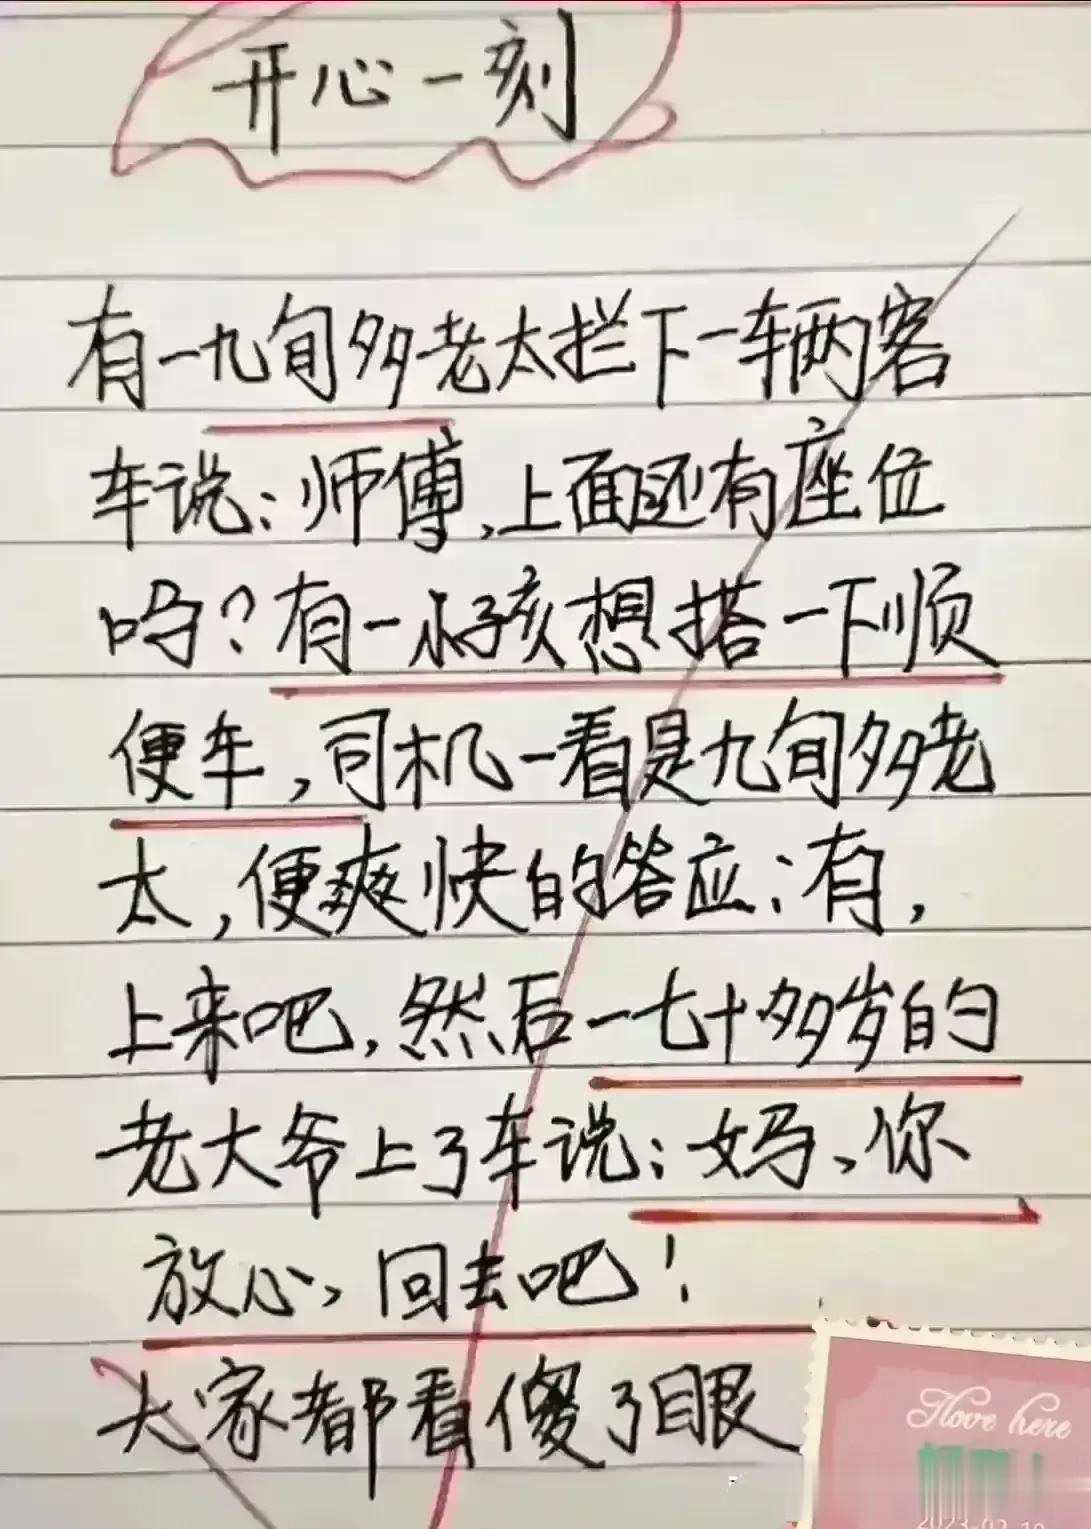 开心一刻
有一九旬多老太拦下一辆客
车说:师傅,上面还有座位
吗?有一小孩想搭一下顺
便车,司机一看是九旬多老
太,便爽快的答应:有,
上来吧,然后一七十多岁的
老大爷上了车说:妈、你
放心,回去吧!
大家都看傻了眼
I love here